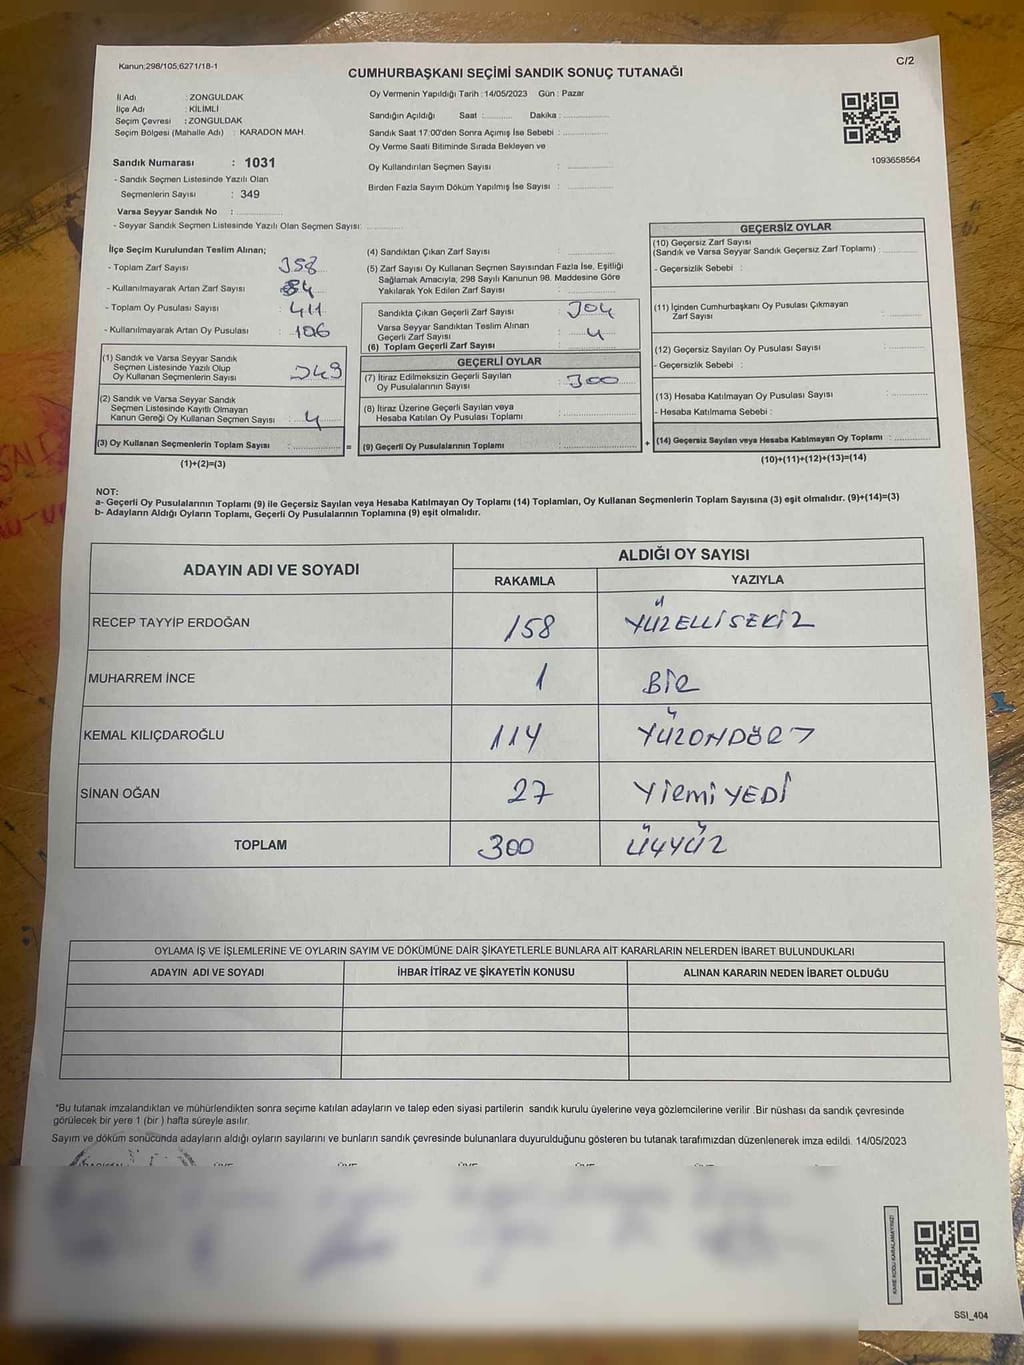 Kanun;298/105,6271/18-1
C/2
CUMHURBAŞKANI SEÇİMİ SANDIK SONUÇ TUTANAĞI
İl Adı : ZONGULDAK
İlçe Adı : KİLİMLİ
Seçim Çevresi : ZONGULDAK
Seçim Bölgesi (Mahalle Adı) : KARADON MAH.
Sandık Numarası : 1031
- Sandık Seçmen Listesinde Yazılı Olan
Seçmenlerin Sayısı : 349
Varsa Seyyar Sandık No :
- Seyyar Sandık Seçmen Listesinde Yazılı Olan Seçmen Sayısı:
Oy Vermenin Yapıldığı Tarih : 14/05/2023 Gün : Pazar
Sandığın Açıldığı Saat : Dakika :
Sandık Saat 17:00'den Sonra Açımış İse Sebebi :
Oy Verme Saati Bitiminde Sırada Bekleyen ve
Oy Kullandırılan Seçmen Sayısı :
Birden Fazla Sayım Döküm Yapılmış İse Sayısı :
1093658564
İlçe Seçim Kurulundan Teslim Alınan;
- Toplam Zarf Sayısı 358
- Kullanılmayarak Artan Zarf Sayısı 54
- Toplam Oy Pusulası Sayısı : 411
- Kullanılmayarak Artan Oy Pusulası : 106
(1) Sandık ve Varsa Seyyar Sandık
Seçmen Listesinde Yazılı Olup
Oy Kullanan Seçmenlerin Sayısı
(2) Sandık ve Varsa Seyyar Sandık
Seçmen Listesinde Kayıtlı Olmayan
Kanun Gereği Oy Kullanan Seçmen Sayısı : 4
(3) Oy Kullanan Seçmenlerin Toplam Sayısı :
(1)+(2)=(3)
(4) Sandıktan Çıkan Zarf Sayısı :
(5) Zarf Sayısı Oy Kullanan Seçmen Sayısından Fazla İse, Eşitliği
Sağlamak Amacıyla, 298 Sayılı Kanunun 98. Maddesine Göre
Yakılarak Yok Edilen Zarf Sayısı :
Sandıkta Çıkan Geçerli Zarf Sayısı : 304
Varsa Seyyar Sandıktan Teslim Alınan
Geçerli Zarf Sayısı : 4
(6) Toplam Geçerli Zarf Sayısı :
GEÇERLİ OYLAR
(7) İtiraz Edilmeksizin Geçerli Sayılan
Oy Pusulalarının Sayısı : 300
(8) İtiraz Üzerine Geçerli Sayılan veya
Hesaba Katılan Oy Pusulası Toplamı :
= (9) Geçerli Oy Pusulalarının Toplamı :
GEÇERSİZ OYLAR
(10) Geçersiz Zarf Sayısı
(Sandık ve Varsa Seyyar Sandık Geçersiz Zarf Toplamı) :
- Geçersizlik Sebebi :
(11) İçinden Cumhurbaşkanı Oy Pusulası Çıkmayan
Zarf Sayısı :
(12) Geçersiz Sayılan Oy Pusulası Sayısı :
- Geçersizlik Sebebi :
(13) Hesaba Katılmayan Oy Pusulası Sayısı :
- Hesaba Katılmama Sebebi :
+ (14) Geçersiz Sayılan veya Hesaba Katılmayan Oy Toplamı :
(10)+(11)+(12)+(13)=(14)
NOT:
a- Geçerli Oy Pusulalarının Toplamı (9) ile Geçersiz Sayılan veya Hesaba Katılmayan Oy Toplamı (14) Toplamları, Oy Kullanan Seçmenlerin Toplam Sayısına (3) eşit olmalıdır. (9)+(14)=(3)
b- Adayların Aldığı Oyların Toplamı, Geçerli Oy Pusulalarının Toplamına (9) eşit olmalıdır.
ADAYIN ADI VE SOYADI
ALDIĞI OY SAYISI
RAKAMLA YAZIYLA
RECEP TAYYİP ERDOĞAN 158 YÜZELLİSEKİZ
MUHARREM İNCE 1 BİR
KEMAL KILIÇDAROĞLU 114 YÜZONDÖRT
SİNAN OĞAN 27 YİRMİYEDİ
TOPLAM 300 ÜÇYÜZ
OYLAMA İŞ VE İŞLEMLERİNE VE OYLARIN SAYIM VE DÖKÜMÜNE DAİR ŞİKAYETLERLE BUNLARA AİT KARARLARIN NELERDEN İBARET BULUNDUKLARI
ADAYIN ADI VE SOYADI İHBAR İTİRAZ VE ŞİKAYETİN KONUSU ALINAN KARARIN NEDEN İBARET OLDUĞU
*Bu tutanak imzalandıktan ve mühürlendikten sonra seçime katılan adayların ve talep eden siyasi partilerin sandık kurulu üyelerine veya gözlemcilerine verilir .Bir nüshası da sandık çevresinde
görülecek bir yere 1 (bir ) hafta süreyle asılır.
Sayım ve döküm sonucunda adayların aldığı oyların sayılarını ve bunların sandık çevresinde bulunanlara duyurulduğunu gösteren bu tutanak tarafımızdan düzenlenerek imza edildi. 14/05/2023
KARE KODU KARALAMAYINIZ!
SSI_404